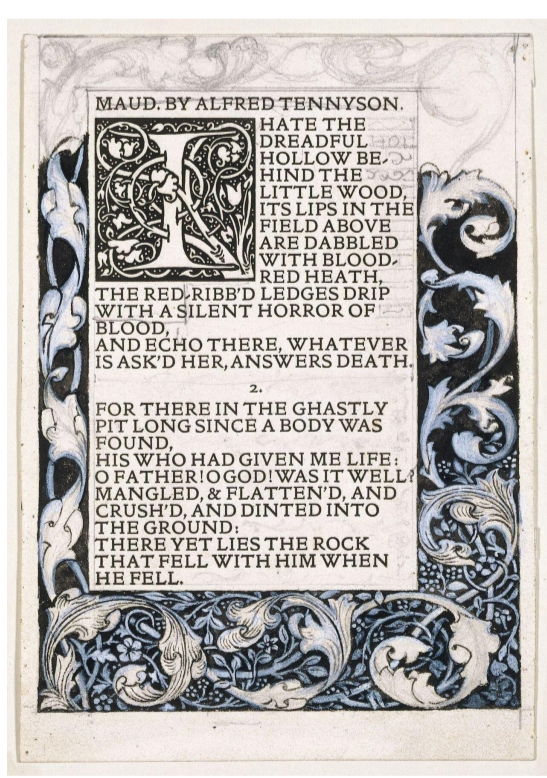 MAUD. BY ALFRED TENNYSON.
I HATE THE
DREADFUL
HOLLOW BE-
HIND THE
LITTLE WOOD,
ITS LIPS IN THE
FIELD ABOVE
ARE DABBLED
WITH BLOOD-
RED HEATH,
THE RED-RIBB'D LEDGES DRIP
WITH A SILENT HORROR OF
BLOOD,
AND ECHO THERE, WHATEVER
IS ASK'D HER, ANSWERS DEATH.
2.
FOR THERE IN THE GHASTLY
PIT LONG SINCE A BODY WAS
FOUND,
HIS WHO HAD GIVEN ME LIFE:
O FATHER! O GOD! WAS IT WELL?
MANGLED, & FLATTEN'D, AND
CRUSH'D, AND DINTED INTO
THE GROUND:
THERE YET LIES THE ROCK
THAT FELL WITH HIM WHEN
HE FELL.